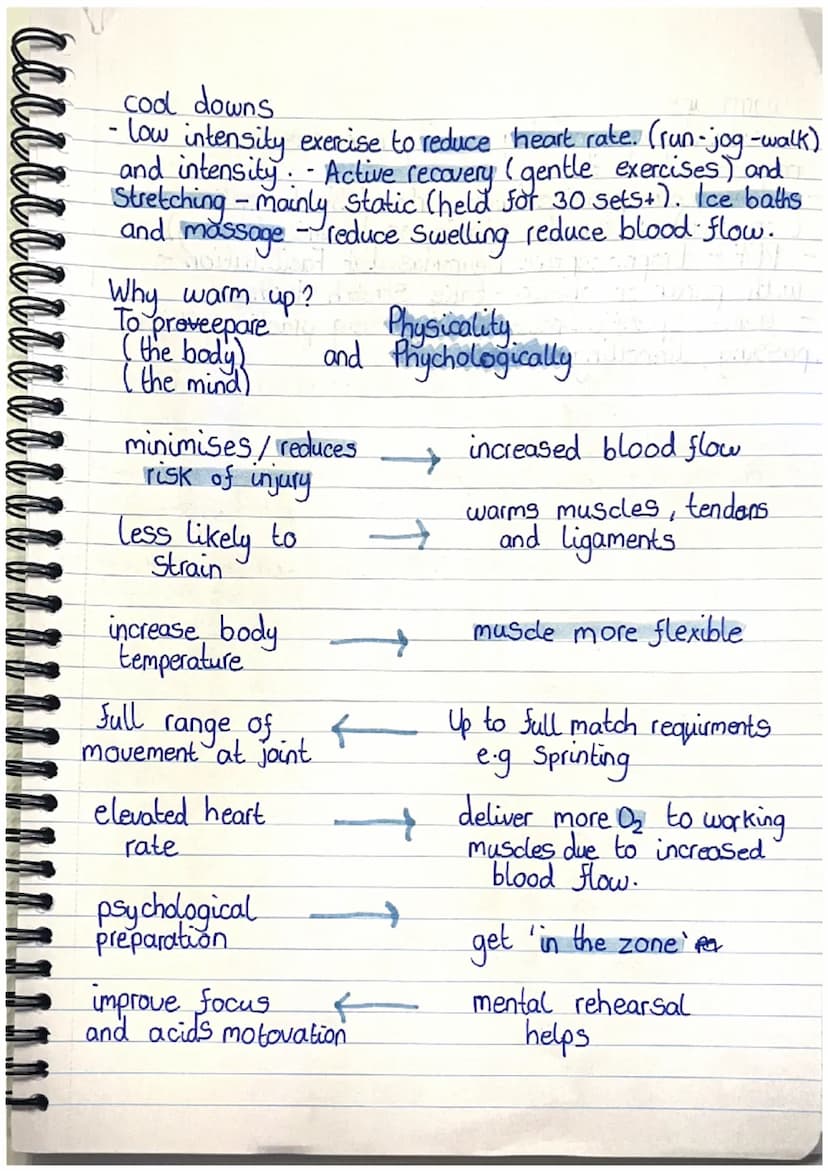 cool downs
- low intensity exercise to reduce heart rate. (run-jog-walk)
and intensity. - Active recovery (gentle exercises) and
Stretching - mainly static (held for 30 sets+). Ice baths
and massage - reduce swelling reduce blood flow.
Why warm up?
To proveepare
(the body)
(the mind)
and
Physicality
Phychologically
minimises/reduces → increased blood flow
risk of injury
Less likely to → warms muscles, tendons
strain and ligaments
increase body → muscle more flexible
temperature
full range of ← Up to full match requirments
movement at joint e.g Sprinting
elevated heart → deliver more O₂ to working
rate muscles due to increased
blood flow.
psychological →
preparation get 'in the zone'
improve focus ← mental rehearsal
and acids motovation helps